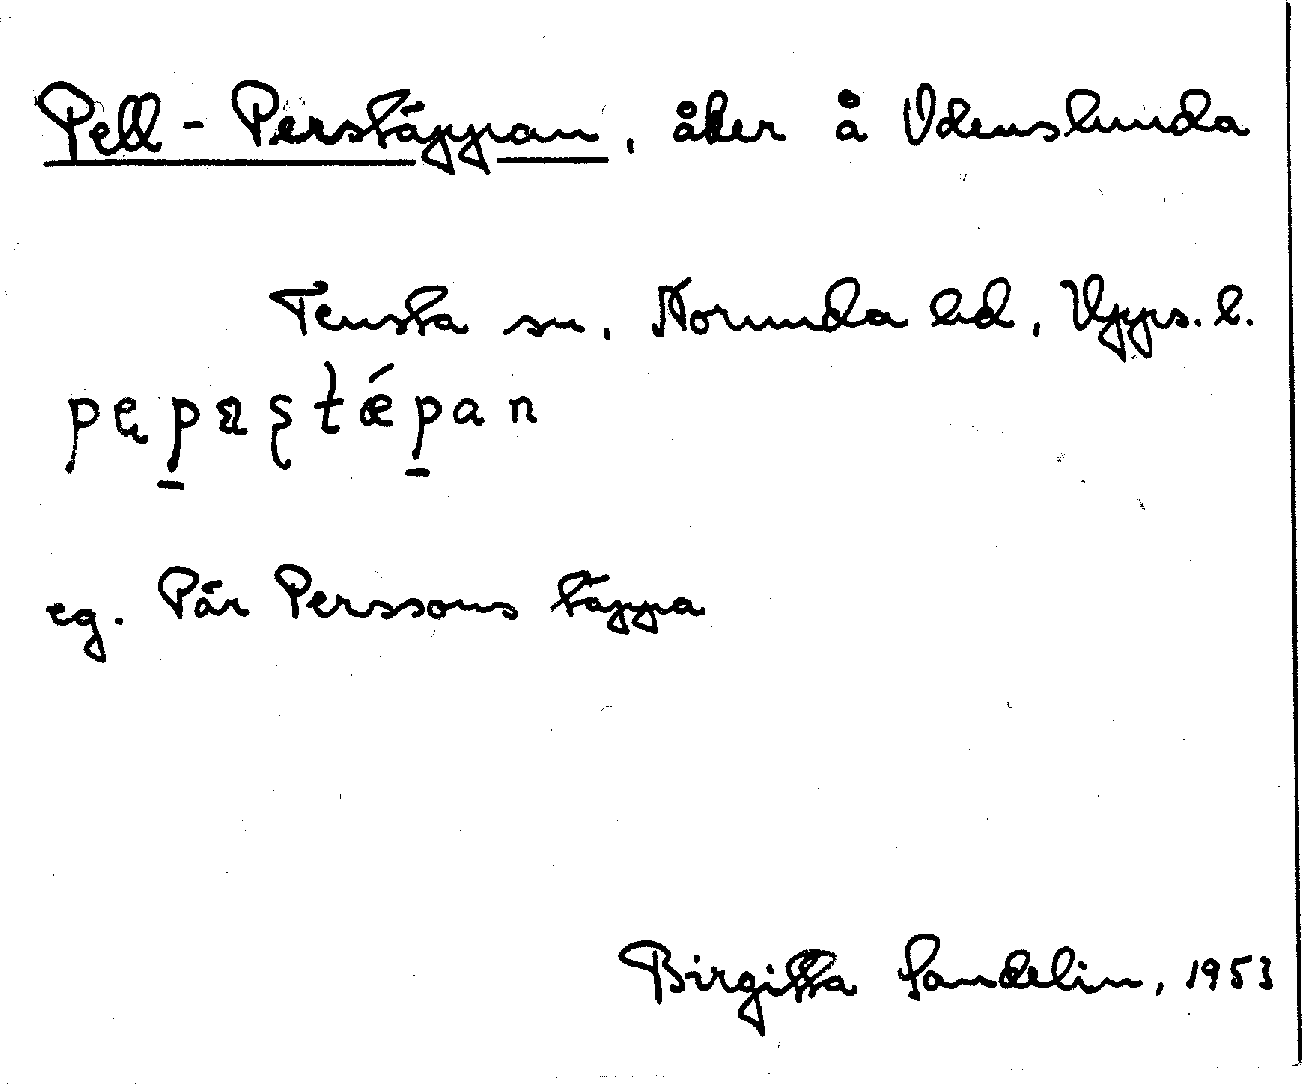 Pell-Perstäppan, åker å Odenslunda
Tensta sn, Norunda hd, Upps. l.
eg. Pär Perssons täppa
Birgitta Sandelin, 1953